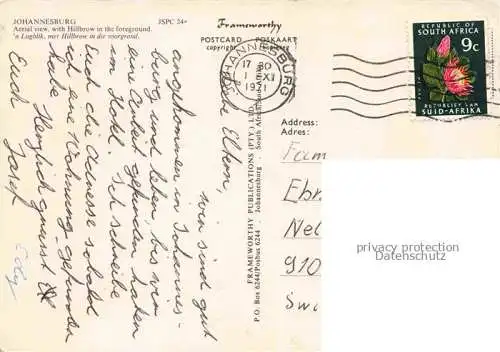 JOHANNESBURG
Aerial view, with Hillbrow in the foreground.
'n Lugblik, met Hillbrow in die voorgrond.
JSPC 24
Frameworthy
POSTCARD POSKAART
copyright
JOHANNESBURG
17 30
1 XII
1971
REPUBLIC OF
SOUTH AFRICA
9c
REPUBLIEK VAN
SUID-AFRIKA
Eltern,
wir sind gut
angekommen in Johannes-
burg und leben, bis wir
eine Arbeit gefunden haben
im Hotel. Ich schreibe
Euch die Adresse sobald
ich eine Wohnung gefunden
habe. Herzlich grüsst
Euch Josef
FRAMEWORTHY PUBLICATIONS (PTY.) LTD.
P.O. Box 6244/Posbus 6244 - Johannesburg - South Africa
Address:
Adres:
Fam
Ebn
Nel
910
Swi
privacy protection
Datenschutz